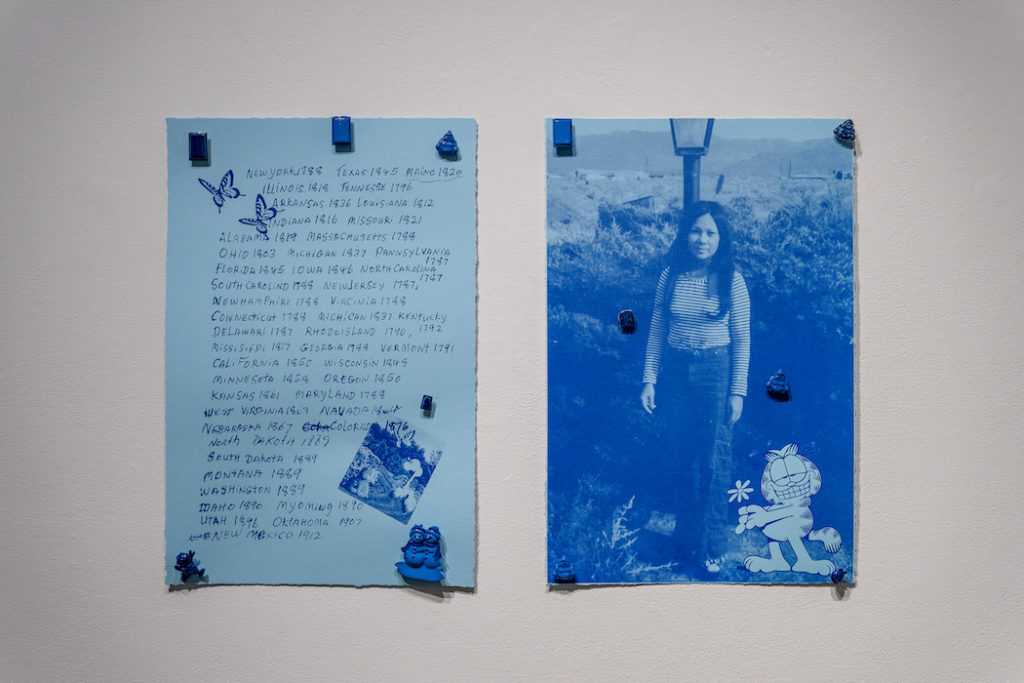 NEW YORK 1788 TEXAS 1845 MAINO 1820
ILLINOIS. 1818 TENNESSE 1796
ARKANSAS 1836 LOUISIANA 1812
INDIANA 1816 MISSOURI 1821
ALABAMA 1819 MASSACHUSETTS 1788
OHIO 1803 MICHIGAN 1837 PANNSYLVANIA 1787
FLORIDA 1845 IOWA 1846 NORTH CAROLINA 1787
SOUTH CAROLIND 1788 NEW JERSEY 1787,
NEW HAMPHIRE 1788 VIRGINIA 1788
CONNECTICUT 1788 MICHICAN 1837 KENTUCKY 1792
DELAWARI 1787 RHODEISLAND 1790,
MISSISIEPI 1817 GEORGIA 1788 VERMONT 1791
CALIFORNIA 1850 WISCONSIN 1848
MINNESOTA 1858 OREGON 1850
KANSAS 1861 MARYLAND 1788
WEST VIRGINIA 1863 NAVADA 1864
NEBARASKA 1867 COLORADO 1876
NORTH DAKOTA 1889
SOUTH DAKOTA 1889
MONTANA 1889
WASHINGTON 1889
IDAHO 1890 MYOMING 1890
UTAH 1896 OKLAHOMA 1907
NEW MEXICO 1912